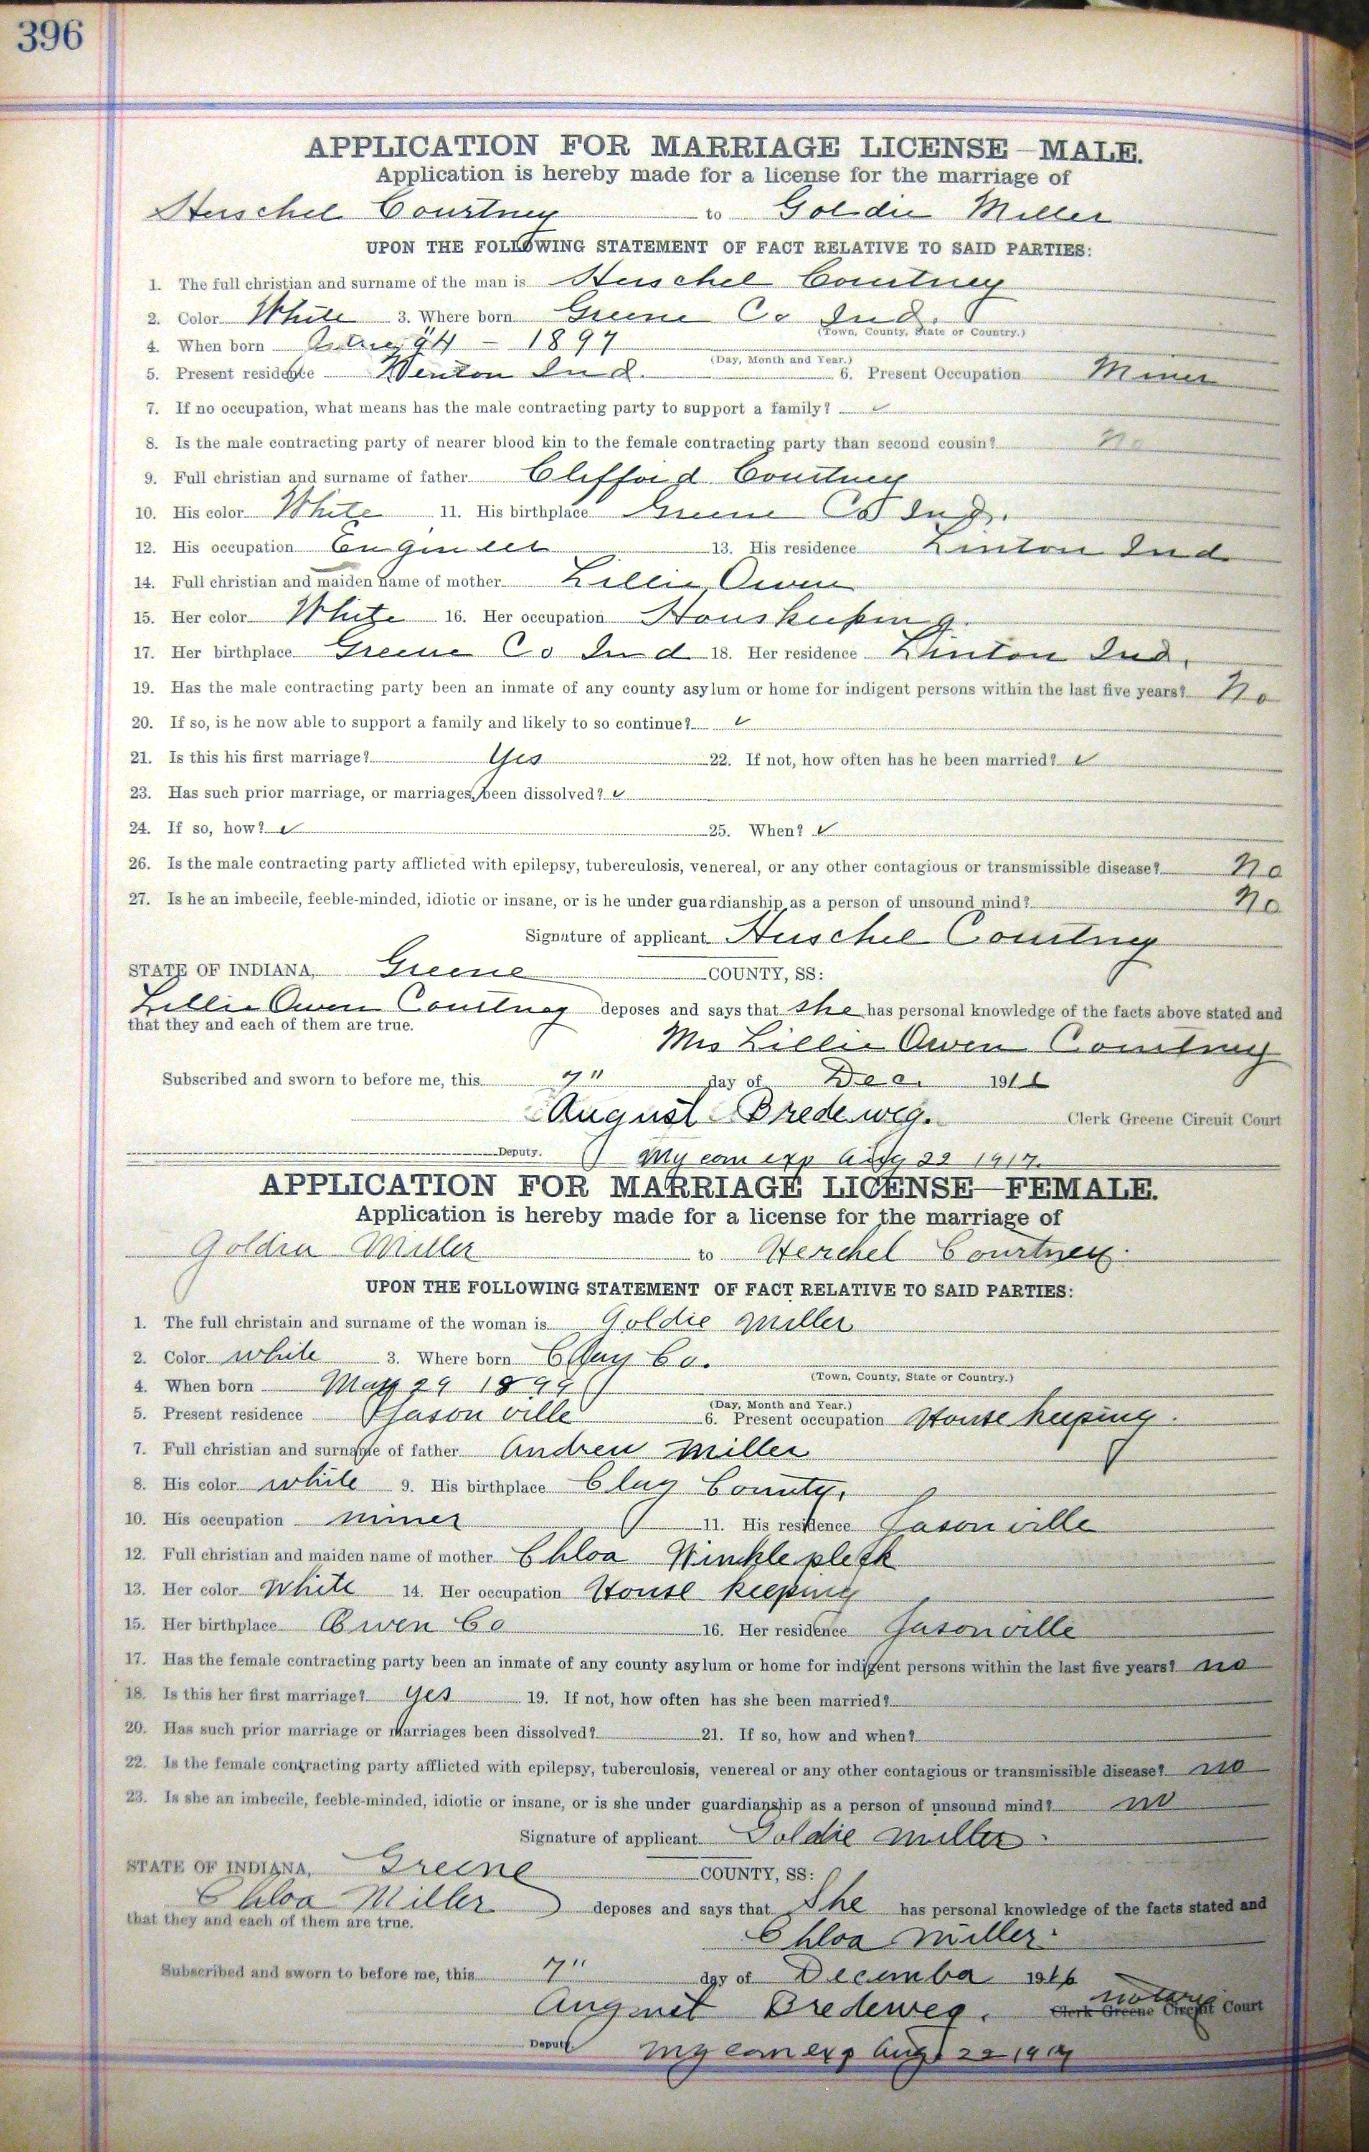 396
APPLICATION FOR MARRIAGE LICENSE—MALE.
Application is hereby made for a license for the marriage of
Herschel Courtney to Goldie Miller
UPON THE FOLLOWING STATEMENT OF FACT RELATIVE TO SAID PARTIES:
1. The full christian and surname of the man is Herschel Courtney
2. Color White 3. Where born Greene Co Ind.
(Town, County, State or Country.)
4. When born 1897
(Day, Month and Year.)
5. Present residence Ind. 6. Present Occupation Miner
7. If no occupation, what means has the male contracting party to support a family? ✓
8. Is the male contracting party of nearer blood kin to the female contracting party than second cousin? No
9. Full christian and surname of father Clifford Courtney
10. His color White 11. His birthplace Greene Co Ind.
12. His occupation Engineer 13. His residence Linton Ind
14. Full christian and maiden name of mother Lillie Owen
15. Her color White 16. Her occupation Houskeeping
17. Her birthplace Greene Co Ind 18. Her residence Linton Ind.
19. Has the male contracting party been an inmate of any county asylum or home for indigent persons within the last five years? No
20. If so, is he now able to support a family and likely to so continue? ✓
21. Is this his first marriage? Yes 22. If not, how often has he been married? ✓
23. Has such prior marriage, or marriages, been dissolved? ✓
24. If so, how? ✓ 25. When? ✓
26. Is the male contracting party afflicted with epilepsy, tuberculosis, venereal, or any other contagious or transmissible disease? No
27. Is he an imbecile, feeble-minded, idiotic or insane, or is he under guardianship as a person of unsound mind? No
Signature of applicant Herschel Courtney
STATE OF INDIANA, Greene COUNTY, SS:
Lillie Owen Courtney deposes and says that she has personal knowledge of the facts above stated and
that they and each of them are true.
Mrs Lillie Owen Courtney
Subscribed and sworn to before me, this 7" day of Dec. 1916
August Bredeweg. Clerk Greene Circuit Court
Deputy. My com exp Aug 22 1917.
APPLICATION FOR MARRIAGE LICENSE—FEMALE.
Application is hereby made for a license for the marriage of
Goldia Miller to Herchel Courtney.
UPON THE FOLLOWING STATEMENT OF FACT RELATIVE TO SAID PARTIES:
1. The full christain and surname of the woman is Goldie Miller
2. Color white 3. Where born Clay Co.
(Town, County, State or Country.)
4. When born May 29 1899
(Day, Month and Year.)
5. Present residence Jasonville 6. Present occupation House keeping.
7. Full christian and surname of father Andrew Miller
8. His color white 9. His birthplace Clay County.
10. His occupation miner 11. His residence Jasonville
12. Full christian and maiden name of mother Chloa Winklepleck
13. Her color white 14. Her occupation House keeping
15. Her birthplace Owen Co 16. Her residence Jasonville
17. Has the female contracting party been an inmate of any county asylum or home for indigent persons within the last five years? no
18. Is this her first marriage? yes 19. If not, how often has she been married?
20. Has such prior marriage or marriages been dissolved? 21. If so, how and when?
22. Is the female contracting party afflicted with epilepsy, tuberculosis, venereal or any other contagious or transmissible disease? no
23. Is she an imbecile, feeble-minded, idiotic or insane, or is she under guardianship as a person of unsound mind? no
Signature of applicant Goldie Miller.
STATE OF INDIANA, Greene COUNTY, SS:
Chloa Miller deposes and says that She has personal knowledge of the facts stated and
that they and each of them are true.
Chloa Miller.
Subscribed and sworn to before me, this 7" day of December 1916
August Bredeweg. Clerk Greene Circuit Court
Deputy My com exp Aug 22 1917